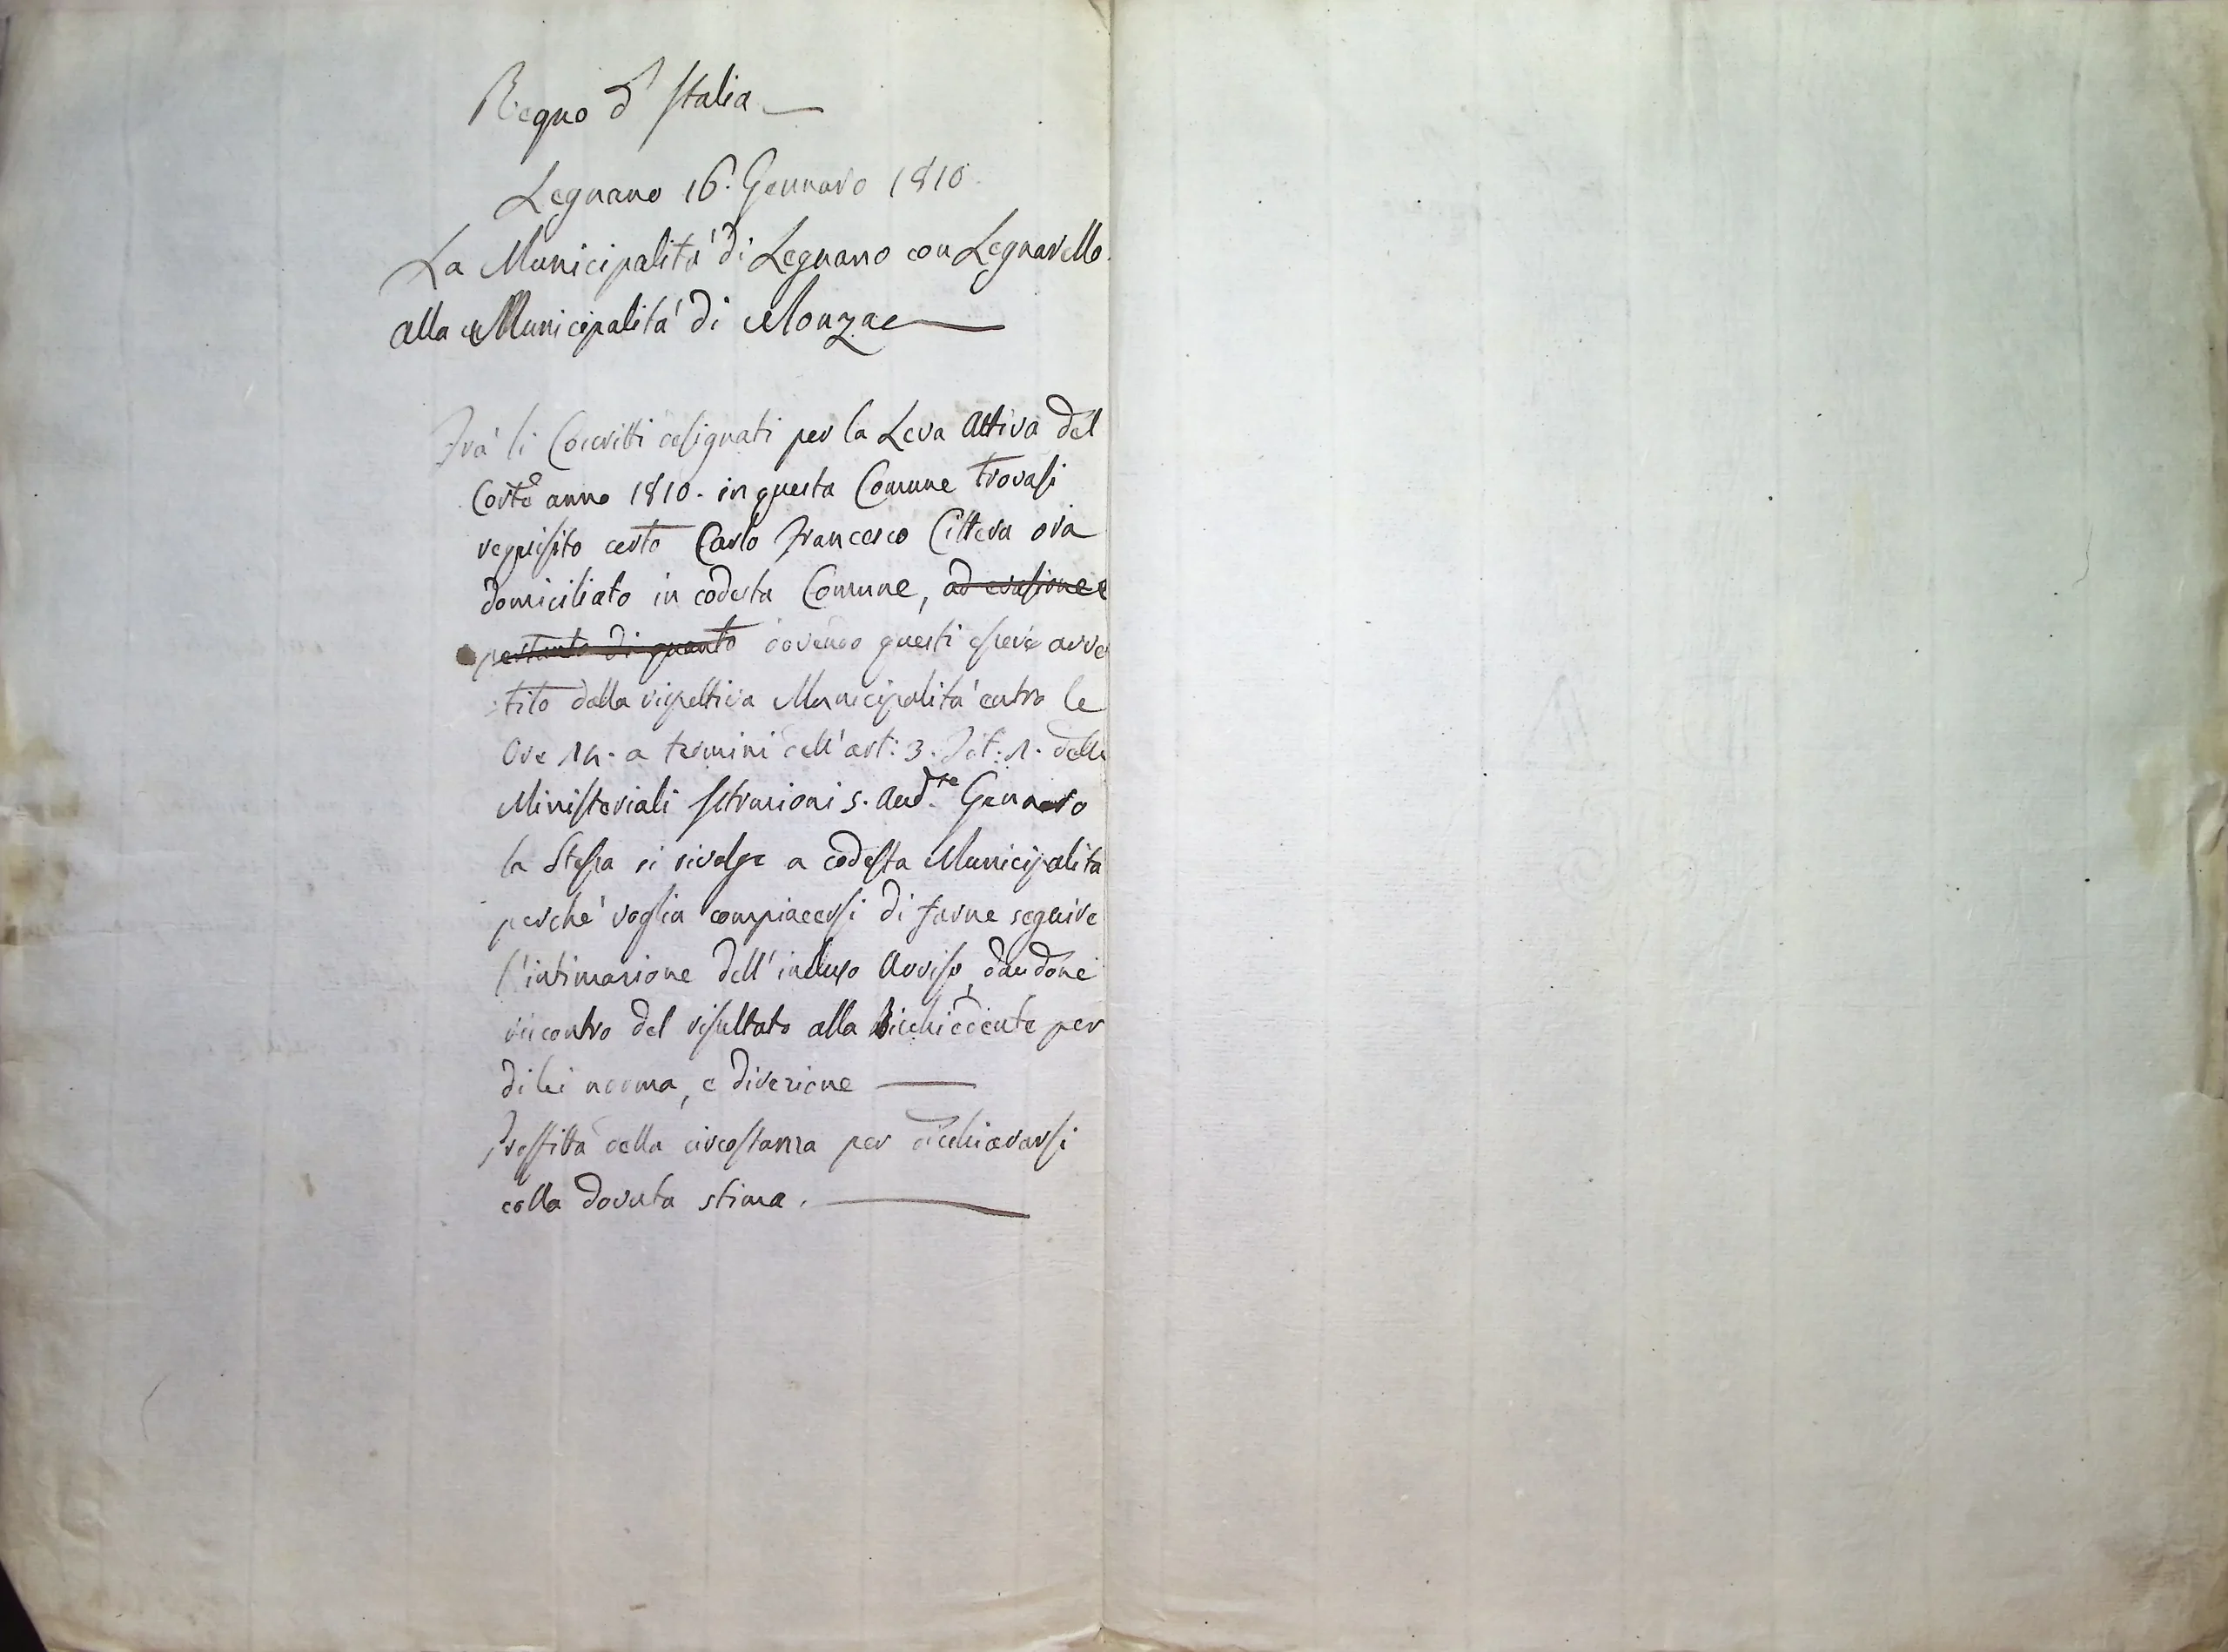 Regno d'Italia
Legnano 16. Gennaro 1810.
La Municipalita' di Legnano con Legnarello
alla Municipalita' di Monza
Fra' li Coscritti designati per la Leva Attiva del
Corte anno 1810. in questa Comune trovasi
requisito certo Carlo Francesco Citera ora
domiciliato in codesta Comune, ad evasione
pertanto di quanto dovendo questi essere avver
tito dalla rispettiva Municipalita' entro le
Ore 24. a termini dell'art: 3. Tit: 1. delle
Ministeriali Istruzioni 5. And.te Gennaro
la Stessa si rivolge a codesta Municipalita
perche' voglia compiacersi di farne seguire
l'intimazione dell'incluso Avviso, dandone
riscontro del risultato alla Richiedente per
di lei norma, e direzione
Proffitta della circostanza per dichiararsi
colla dovuta stima.